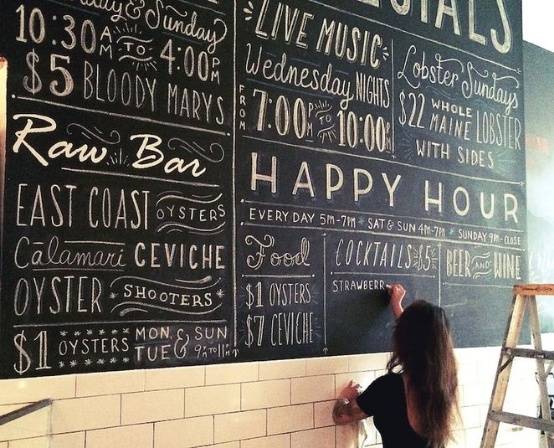 &Sunday
10:30AM TO 4:00PM
$5 BLOODY MARYS
Raw Bar
EAST COAST OYSTERS
Calamari CEVICHE
OYSTER SHOOTERS
$1 OYSTERS MON, & SUN
TUE
LIVE MUSIC
Wednesday NIGHTS
FROM 7:00PM TO 10:00PM
Lobster Sundays
$22 WHOLE
MAINE LOBSTER
WITH SIDES
HAPPY HOUR
EVERY DAY 5PM-7PM * SAT & SUN 4PM-7PM * SUNDAY 9PM-CLOSE
Food
$1 OYSTERS
$7 CEVICHE
COCKTAILS $5
STRAWBERR
BEER AND WINE